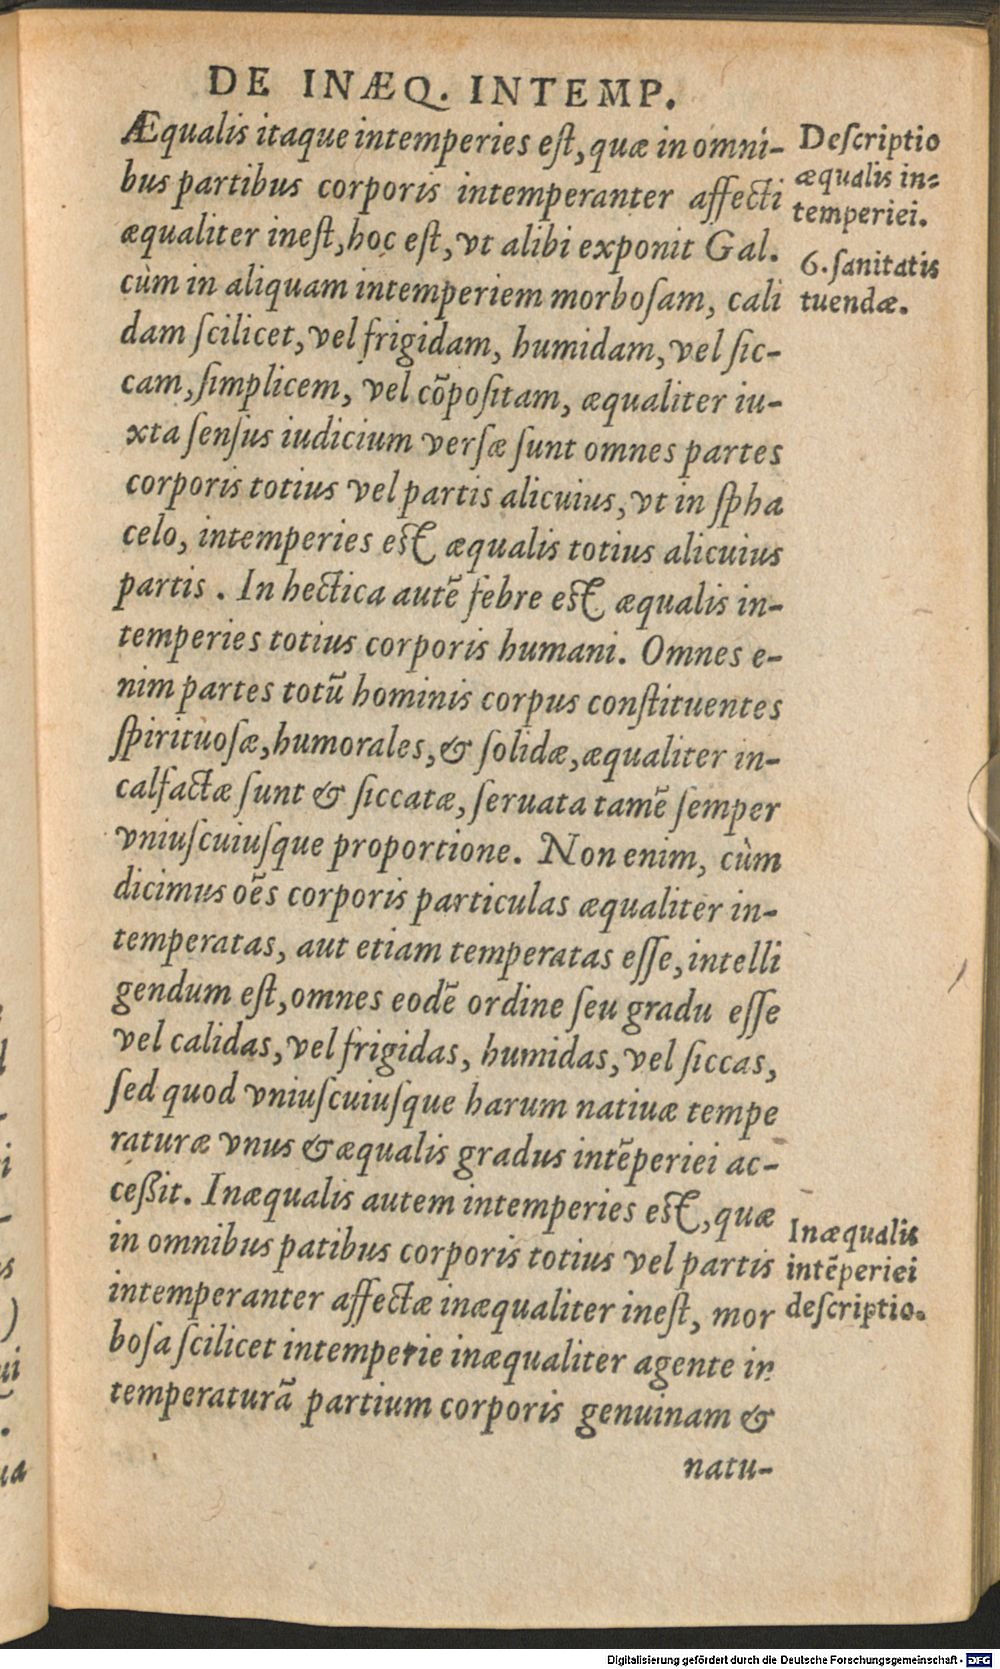 DE INÆQ. INTEMP.
Æqualis itaque intemperies eſt, quæ in omni-
bus partibus corporis intemperanter affecti
æqualiter ineſt, hoc eſt, vt alibi exponit Gal.
cùm in aliquam intemperiem morboſam, cali
dam ſcilicet, vel frigidam, humidam, vel ſic-
cam, ſimplicem, vel cõpoſitam, æqualiter iu-
xta ſenſus iudicium verſæ ſunt omnes partes
corporis totius vel partis alicuius, vt in ſpha
celo, intemperies eſt æqualis totius alicuius
partis. In hectica autẽ febre eſt æqualis in-
temperies totius corporis humani. Omnes e-
nim partes totũ hominis corpus conſtituentes
ſpirituoſæ, humorales, & ſolidæ, æqualiter in-
calfactæ ſunt & ſiccatæ, ſeruata tamẽ ſemper
vniuſcuiuſque proportione. Non enim, cùm
dicimus oẽs corporis particulas æqualiter in-
temperatas, aut etiam temperatas eſſe, intelli
gendum eſt, omnes eodẽ ordine ſeu gradu eſſe
vel calidas, vel frigidas, humidas, vel ſiccas,
ſed quod vniuſcuiuſque harum natiuæ tempe
raturæ vnus & æqualis gradus intẽperiei ac-
ceßit. Inæqualis autem intemperies eſt, quæ
in omnibus patibus corporis totius vel partis
intemperanter affectæ inæqualiter ineſt, mor
boſa ſcilicet intemperie inæqualiter agente in
temperaturã partium corporis genuinam &
natu-
Deſcriptio
æqualis in-
temperiei.
6. ſanitatis
tuendæ.
Inæqualis
intẽperiei
deſcriptio.
Digitalisierung gefördert durch die Deutsche Forschungsgemeinschaft - DFG